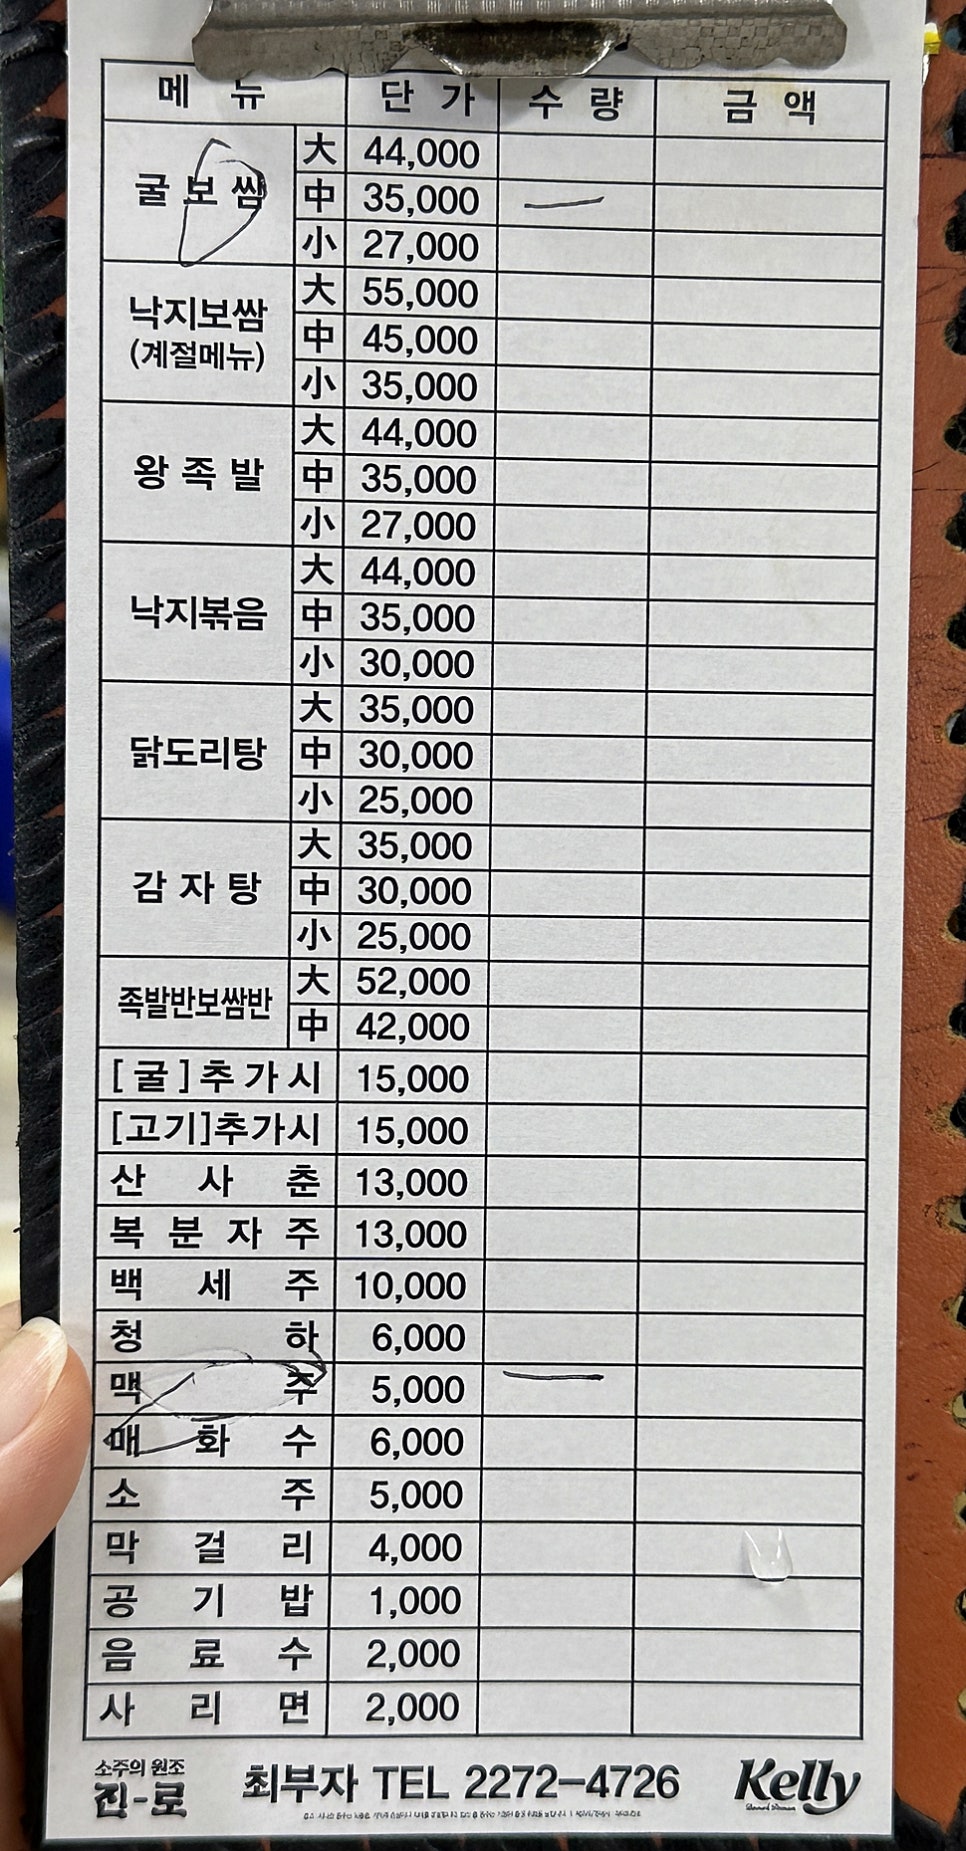 메 뉴 단 가 수 량 금 액
굴 보 쌈 大 44,000
中 35,000 一
小 27,000
낙지보쌈 (계절메뉴) 大 55,000
中 45,000
小 35,000
왕 족 발 大 44,000
中 35,000
小 27,000
낙지볶음 大 44,000
中 35,000
小 30,000
닭도리탕 大 35,000
中 30,000
小 25,000
감 자 탕 大 35,000
中 30,000
小 25,000
족발반보쌈반 大 52,000
中 42,000
[굴]추 가 시 15,000
[고기]추가시 15,000
산 사 춘 13,000
복 분 자 주 13,000
백 세 주 10,000
청 하 6,000
맥 주 5,000 一
매 화 수 6,000
소 주 5,000
막 걸 리 4,000
공 기 밥 1,000
음 료 수 2,000
사 리 면 2,000
소주의 원조
진-로 최부자 TEL 2272-4726 Kelly